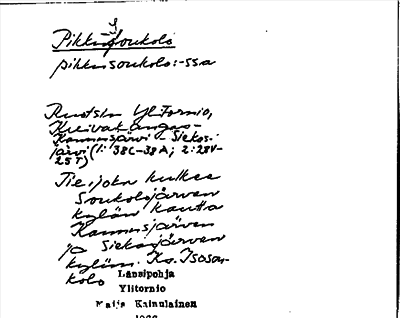 Pikku Soukolo
pikkusoukolo:-ssa
Ruotsin Yl Tornio,
Kuivakangas-
Kannusjärvi - Siekas-
järvi (1: 38C-38A; 2:28V-
25T)
Tie, joka kulkee
Soukolojärven
kylän kautta
Kannusjärven
ja Siekasjärven
kyliin. Ks. Isosou-
kolo
Länsipohja
Ylitornio
Maija Kainulainen